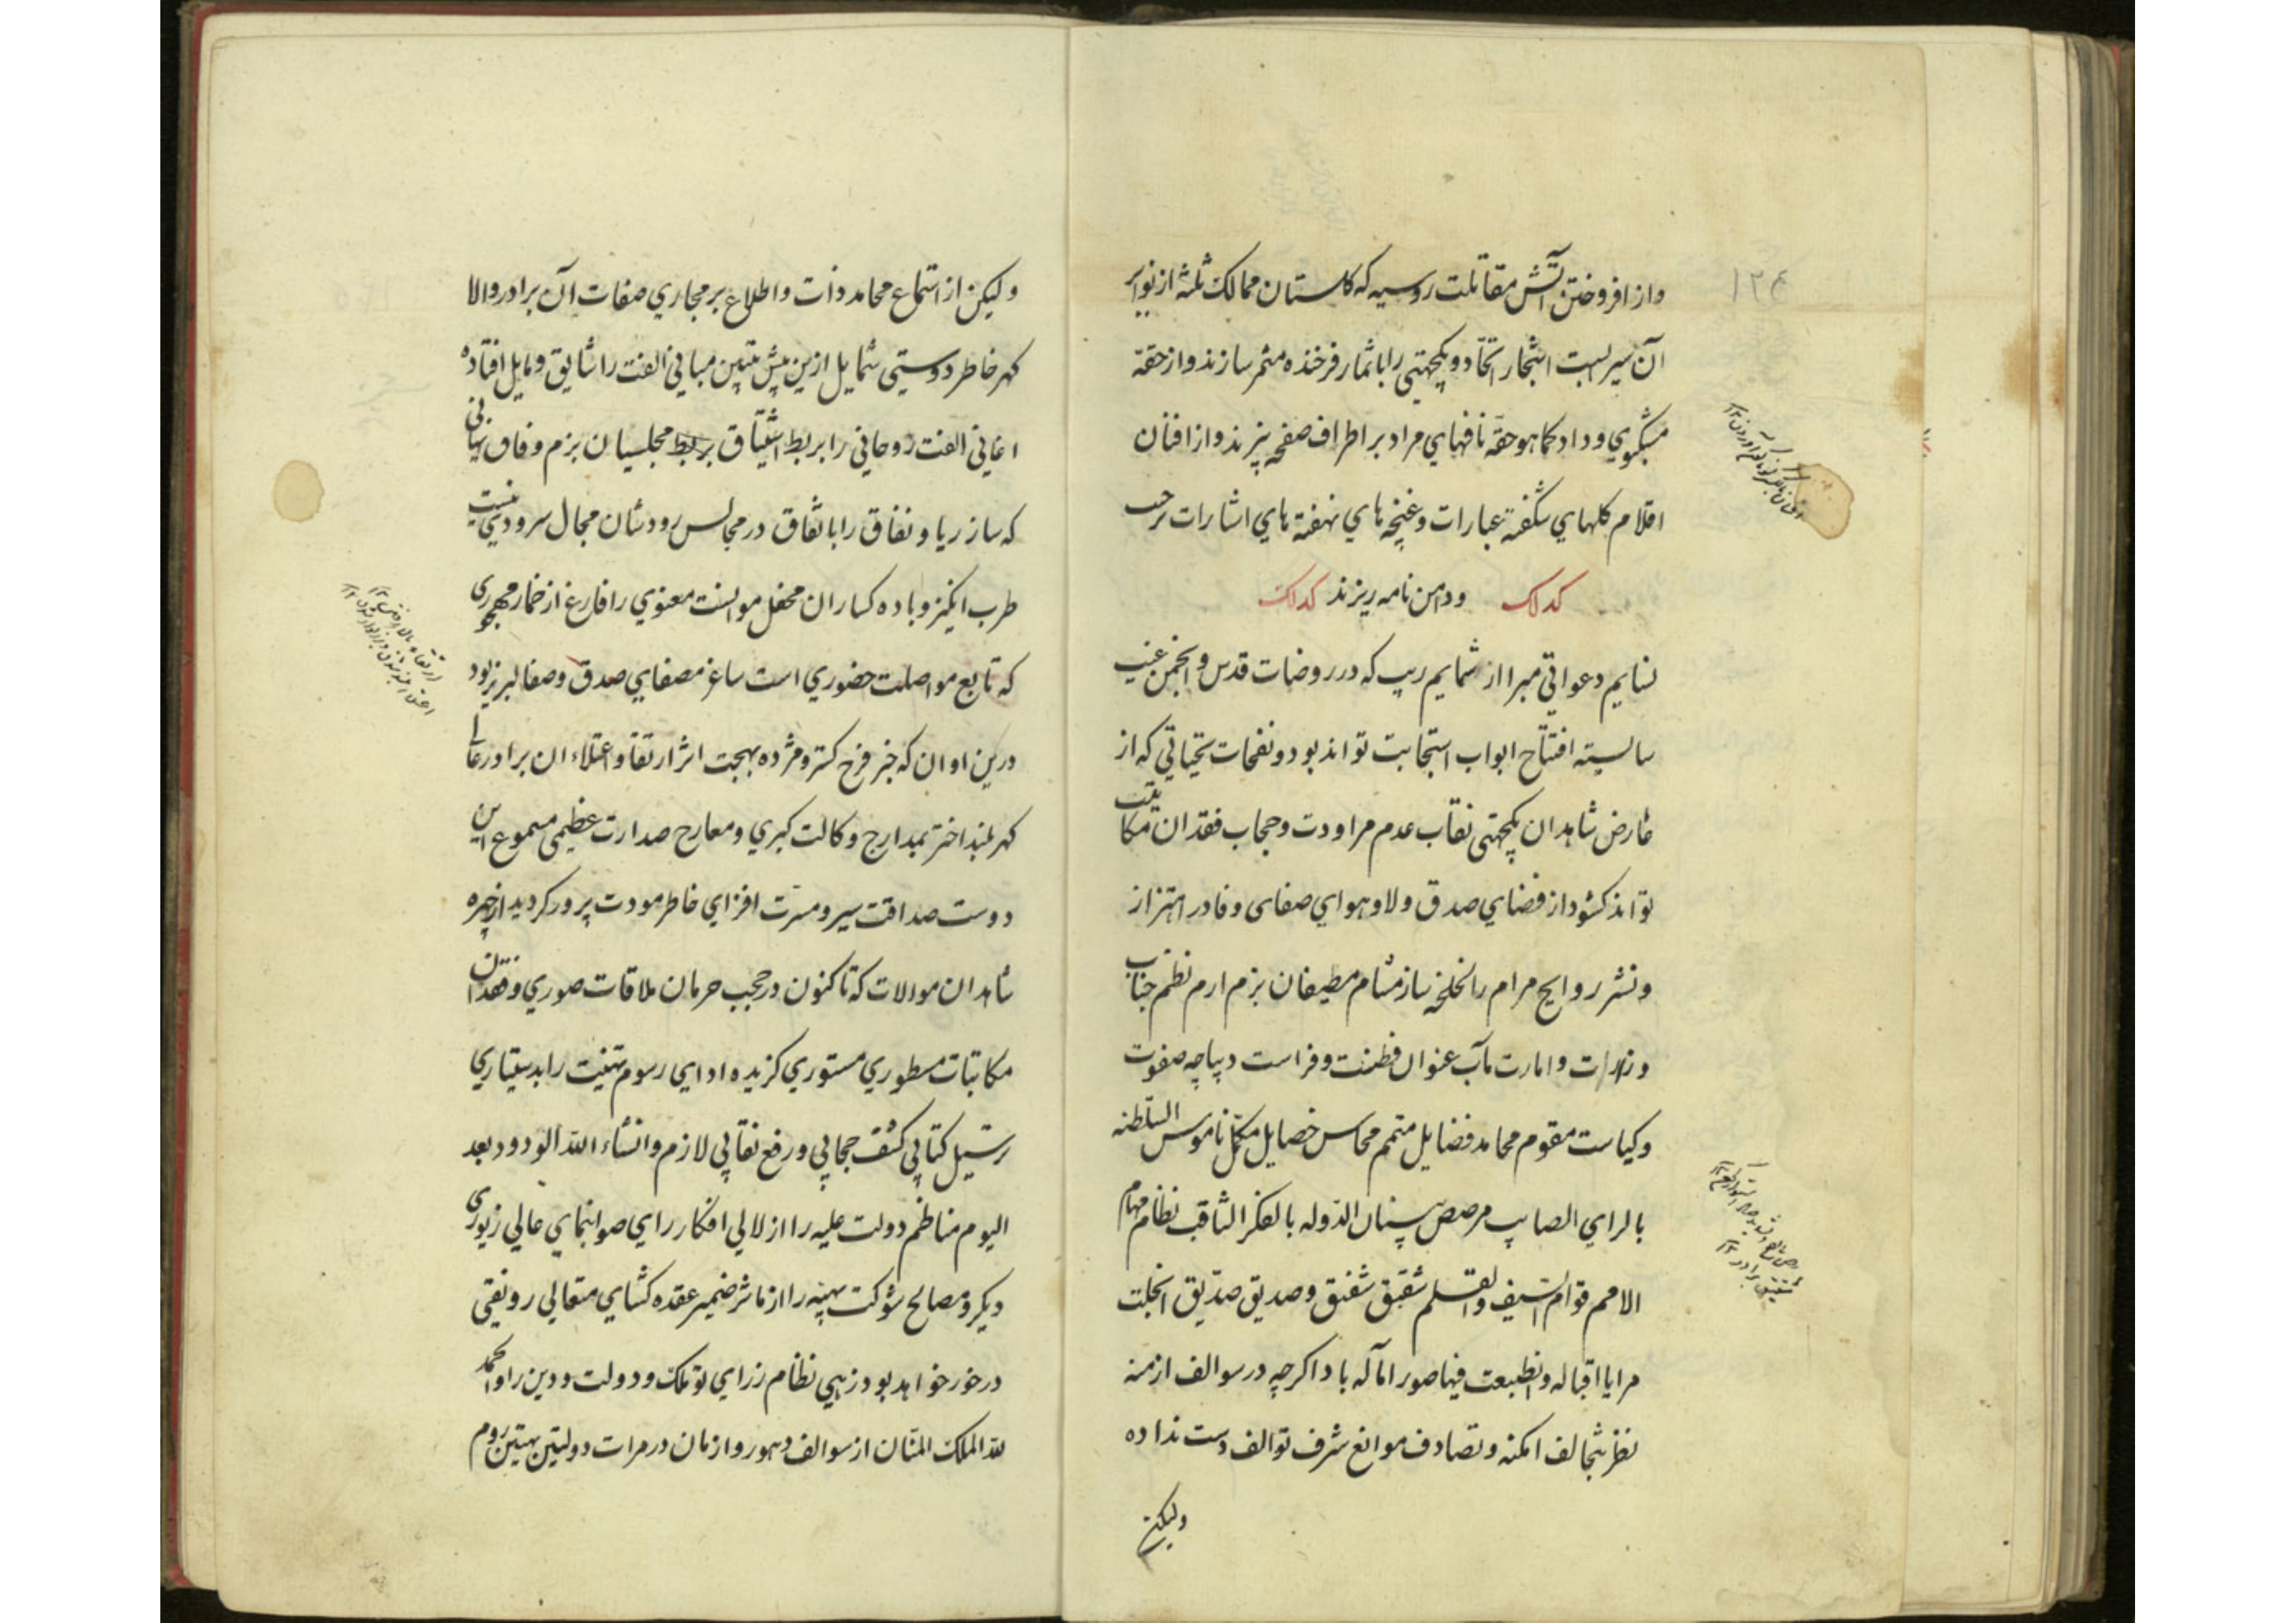 ۱۲۴
واز افروختن آتش مقاتلت روسیه که کلستان ممالک ثلثه از نوایر
آن سیر لهبت اشجار اتحاد و یکجهتی را باثمار فرخنده مثمر سازند واز حقه
مشکبوی وداد کماهو حقه نافهای مراد بر اطراف صفحه پزند واز افنان
اقلام کلهای شکفته عبارات وغنچه های نهفته های اشارات برجیب
کدلک ودامن نامه ریزند کدلک
لسایم دعواتی مبرا از شمایم ریب که در روضات قدس وانجمن غیب
سالسیته افتتاح ابواب استجابت تواند بود ونفحات تحیاتی که از
عارض شاهدان یکجهتی نقاب عدم مراودت وحجاب فقدان مکاتبت
تواند کشود از فضای صدق ولا وهوای صفای وفا در اهتزاز
ونشر روایح مرام را لخلخه ساز مشام مطیفان بزم ارم نظم جناب
وزارت وامارت مآب عنوان فطنت وفراست دیباچه صفوت
وکیاست مقوم محامد فضایل متمم محاسن خصایل مکمل ناموس السلطنه
بالرای الصایب مرصص بنیان الدوله بالفکر الثاقب نظام مهام
الامم قوام السیف والقلم شقیق شفیق وصدیق صدیق انجلت
مرایا اقباله وانطبعت فیها صور آماله باد اکرچه در سوالف ازمنه
نظر بتخالف امکنه وتصادف موانع شرف توالف دست نداده
ولیکن
ولیکن از استماع محامد ذات واطلاع بر مجاری صفات آن برادر والا
کهر خاطر دوستی شمایل ازین پیش بتبین مبانی الفت را شایق ومایل افتاده
اغانی الفت روحانی را بربط اشتیاق بربط مجلسیان بزم وفاق نهانی
که ساز ریا ونفاق را باتفاق در مجالس رودشان مجال سرودی نیست
طرب انکیز وباده کساران محفل موانست معنوی را فارغ از خمار مهجوری
که تابع مواصلت حضوری است ساغر مصفای صدق وصفا لبریز بود
درین اوان که خبر فرح کستر ومژده بهجت اثر ارتقا واعتلاء ان برادر عالی
کهر بلند اختر بمدارج وکالت کبری ومعارج صدارت عظیمی مسموع این
دوست صداقت سیر ومسرت افزای خاطر مودت پرور کردید از چهره
شاهدان موالات که تا کنون در حجب حرمان ملاقات صوری وفقدان
مکاتبات مسطوری مستوری کزیده ادای رسوم تهنیت را بدستیاری
ترسیل کتابی کشف حجابی ورفع نقابی لازم وانشاء الله الودود بعد
الیوم مناظم دولت علیه را از لالی افکار رای صوابنمای عالی زیوری
دیکر ومصالح شوکت بهیه را از مآثر ضمیر عقده کشای متعالی رونقی
در خور خواهد بود زهی نظام ز رای تو ملک ودولت ودین را والحمد
لله الملک المنان از سوالف دهور وازمان در مرات دولتین بهیتین روم